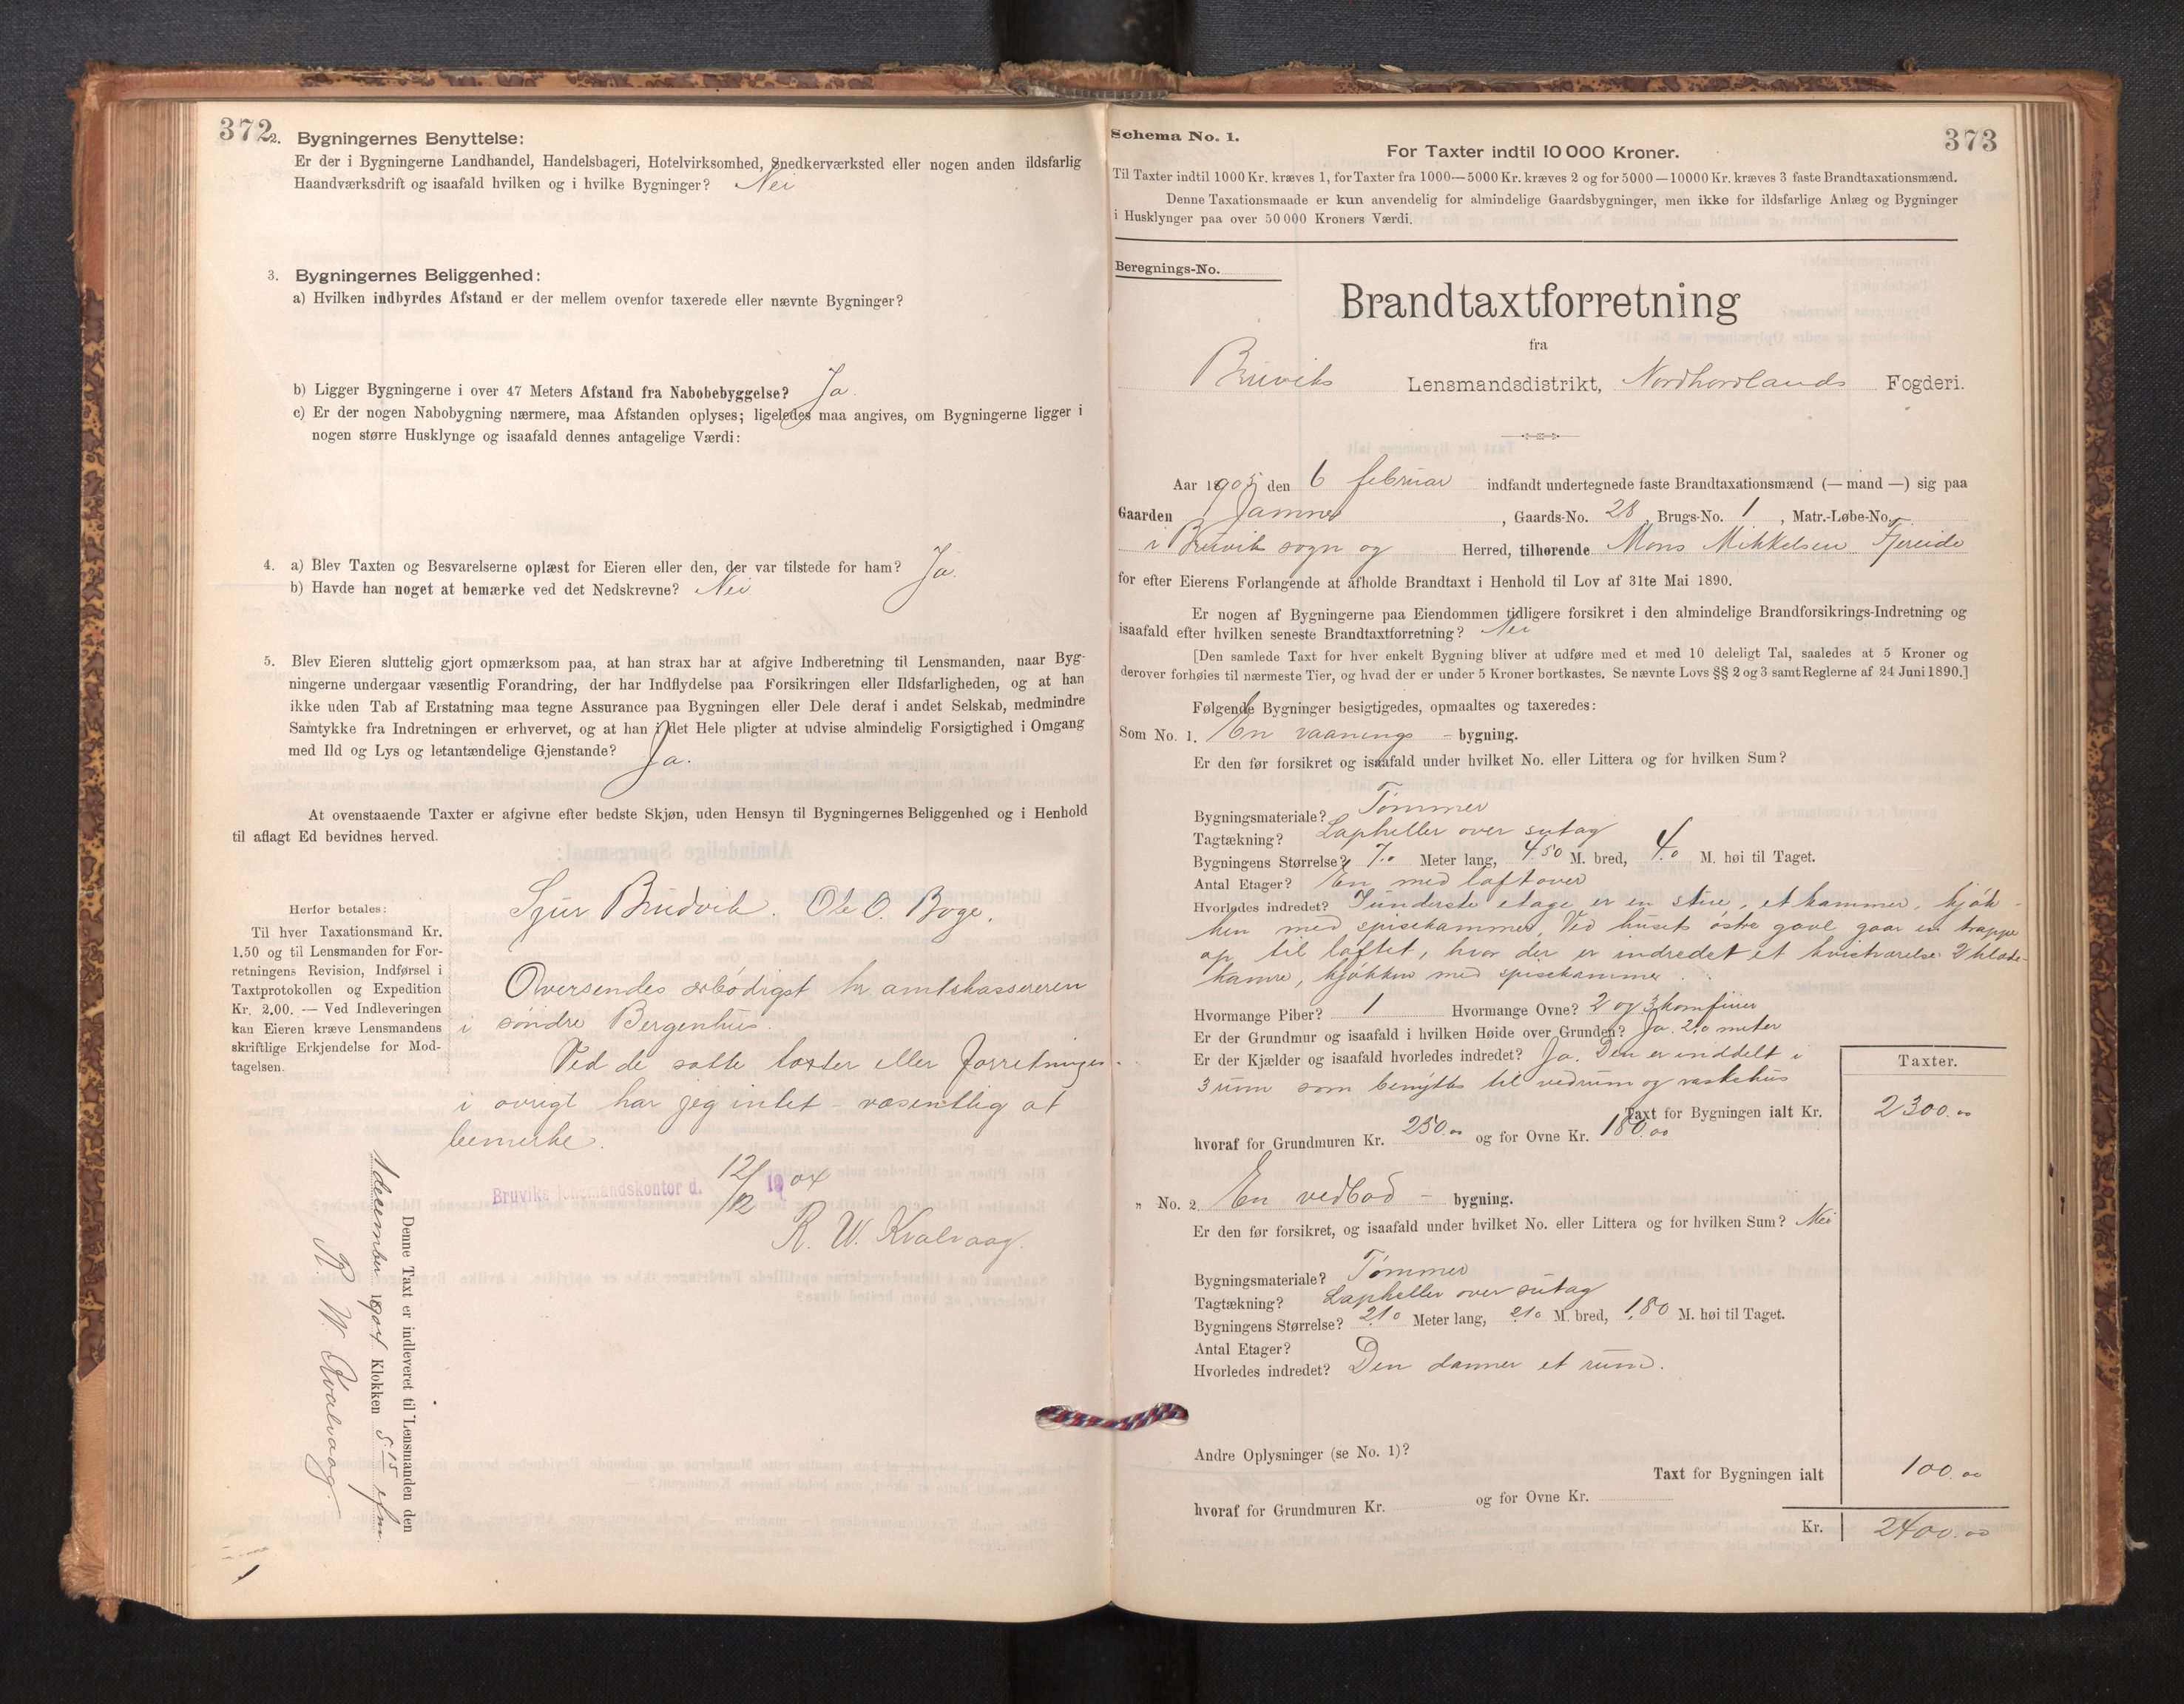 372
2. Bygningernes Benyttelse:
Er der i Bygningerne Landhandel, Handelsbageri, Hotelvirksomhed, Snedkerværksted eller nogen anden ildsfarlig
Haandværksdrift og isaafald hvilken og i hvilke Bygninger? Nei
3. Bygningernes Beliggenhed:
a) Hvilken indbyrdes Afstand er der mellem ovenfor taxerede eller nævnte Bygninger?
b) Ligger Bygningerne i over 47 Meters Afstand fra Nabobebyggelse? Ja.
c) Er der nogen Nabobygning nærmere, maa Afstanden oplyses; ligeledes maa angives, om Bygningerne ligger i
nogen større Husklynge og isaafald dennes antagelige Værdi:
4. a) Blev Taxten og Besvarelserne oplæst for Eieren eller den, der var tilstede for ham? Ja.
b) Havde han noget at bemærke ved det Nedskrevne? Nei
5. Blev Eieren sluttelig gjort opmærksom paa, at han strax har at afgive Indberetning til Lensmanden, naar Byg-
ningerne undergaar væsentlig Forandring, der har Indflydelse paa Forsikringen eller Ildsfarligheden, og at han
ikke uden Tab af Erstatning maa tegne Assurance paa Bygningen eller Dele deraf i andet Selskab, medmindre
Samtykke fra Indretningen er erhvervet, og at han i det Hele pligter at udvise almindelig Forsigtighed i Omgang
med Ild og Lys og letantændelige Gjenstande? Ja.
At ovenstaaende Taxter er afgivne efter bedste Skjøn, uden Hensyn til Bygningernes Beliggenhed og i Henhold
til aflagt Ed bevidnes herved.
Sjur Brudvik. Ole O. Boge.
Herfor betales:
Til hver Taxationsmand Kr.
1.50 og til Lensmanden for For-
retningens Revision, Indførsel i
Taxtprotokollen og Expedition
Kr. 2.00. — Ved Indleveringen
kan Eieren kræve Lensmandens
skriftlige Erkjendelse for Mod-
tagelsen.
Oversendes ærbødigst hr. amtskassereren
i søndre Bergenhus.
Ved de satte taxter eller forretningen
i øvrigt har jeg intet væsentlig at
bemerke.
Bruviks lensmandskontor d. 12/12 1904
R. W. Kvalvaag.
Denne Taxt er indleveret til Lensmanden den
1 december 1904 Klokken 5.15 efm.
R. W. Kvalvaag.
373
Schema No. 1.
For Taxter indtil 10 000 Kroner.
Til Taxter indtil 1000 Kr. kræves 1, for Taxter fra 1000—5000 Kr. kræves 2 og for 5000—10000 Kr. kræves 3 faste Brandtaxationsmænd.
Denne Taxationsmaade er kun anvendelig for almindelige Gaardsbygninger, men ikke for ildsfarlige Anlæg og Bygninger
i Husklynger paa over 50 000 Kroners Værdi.
Beregnings-No.
Brandtaxtforretning
fra
Bruviks Lensmandsdistrikt, Nordhordlands Fogderi.
Aar 1905 den 6 februar indfandt undertegnede faste Brandtaxationsmænd (— mand —) sig paa
Gaarden Jamne , Gaards-No. 28, Brugs-No. 1, Matr.-Løbe-No.
i Bruvik sogn og Herred, tilhørende Mons Mikkelsen Fjereide
for efter Eierens Forlangende at afholde Brandtaxt i Henhold til Lov af 31te Mai 1890.
Er nogen af Bygningerne paa Eiendommen tidligere forsikret i den almindelige Brandforsikrings-Indretning og
isaafald efter hvilken seneste Brandtaxtforretning? Nei
[Den samlede Taxt for hver enkelt Bygning bliver at udføre med et med 10 deleligt Tal, saaledes at 5 Kroner og
derover forhøies til nærmeste Tier, og hvad der er under 5 Kroner bortkastes. Se nævnte Lovs §§ 2 og 3 samt Reglerne af 24 Juni 1890.]
Følgende Bygninger besigtigedes, opmaaltes og taxeredes:
Som No. 1. En vaanings - bygning.
Er den før forsikret og isaafald under hvilket No. eller Littera og for hvilken Sum?
Bygningsmateriale? Tømmer
Tagtækning? Lapheller over sutag
Bygningens Størrelse? 7.0 Meter lang, 4.50 M. bred, 4.0 M. høi til Taget.
Antal Etager? En med loft over
Hvorledes indredet? I underste etage er en stue, et kammer, kjøk-
ken med spisekammer, Ved husets østre gavl gaar en trappe
op til loftet, hvor der er indredet et kvistværelse 2 klæde-
kamre, kjøkken med spisekammer
Hvormange Piber? 1 Hvormange Ovne? 2 og 3 komfurer
Er der Grundmur og isaafald i hvilken Høide over Grunden? Ja. 2.0 meter
Er der Kjælder og isaafald hvorledes indredet? Ja. Den er inddelt i
3 rum som benyttes til vedrum og vaskehus
Taxter.
Taxt for Bygningen ialt Kr. 2300.00
hvoraf for Grundmuren Kr. 250.00 og for Ovne Kr. 180.00
" No. 2. En vedbod - bygning.
Er den før forsikret, og isaafald under hvilket No. eller Littera og for hvilken Sum? Nei
Bygningsmateriale? Tømmer
Tagtækning? Lapheller over sutag
Bygningens Størrelse? 2.10 Meter lang, 2.10 M. bred, 1.80 M. høi til Taget.
Antal Etager?
Hvorledes indredet? Den danner et rum.
Andre Oplysninger (se No. 1)?
Taxt for Bygningen ialt 100.00
hvoraf for Grundmuren Kr. og for Ovne Kr.
Kr. 2400.00